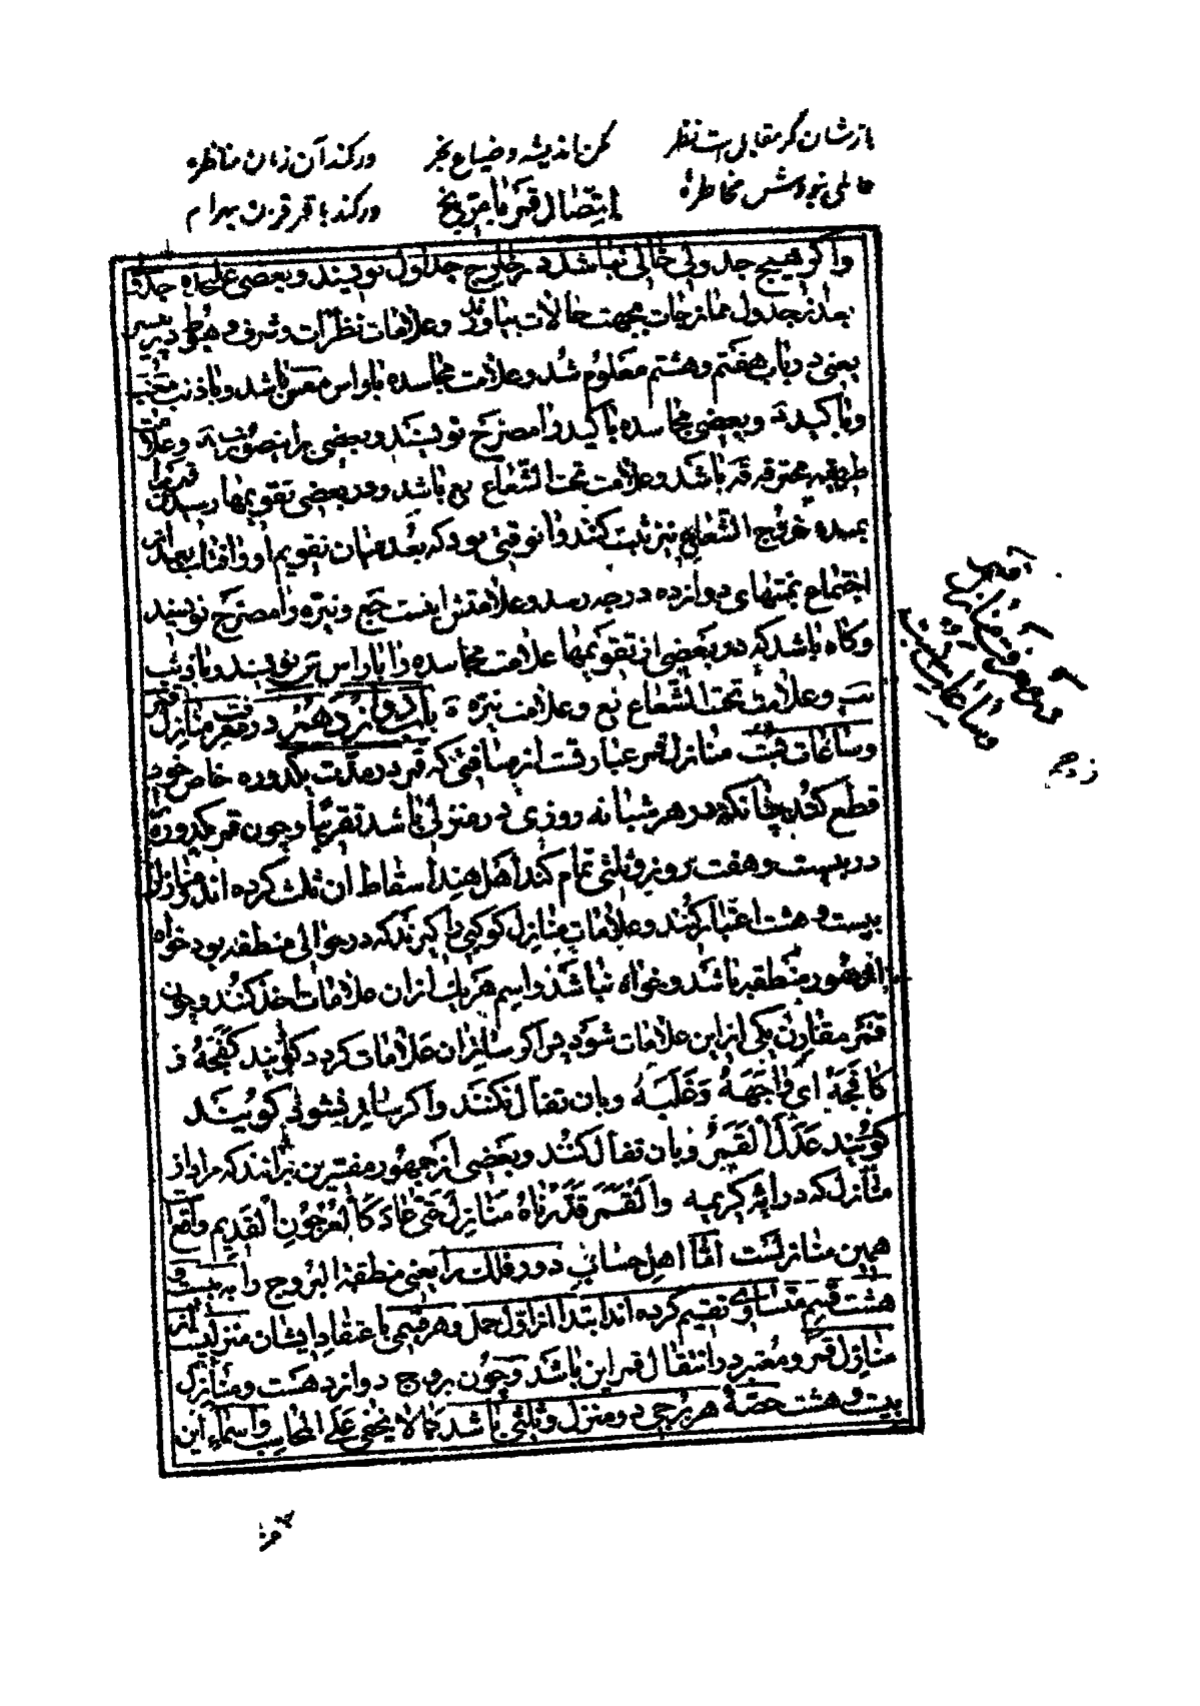 از نشان گر مقابل است نظر
کن اندیشه و ضیاع بخر
ور کند آن زمان مناظره
عالمی نبودش مخاطره
اتصال قمر با مریخ
ور کند با قمر قرن بهرام
واکر هیچ جدولی خالی نباشد در خارج جداول نویسند و بعضی علیحده
بعد از جدول ممازجات بجهت حالات بیاورند و علامات نظرات و شرف و هبوط
یعنی در باب هفتم و هشتم معلوم شد و علامت مجاسده با راس باشد و با ذنب
و با کید و بعضی مجاسده با کید را مصرح نویسند و بعضی براینصورت و علامت
طریقه محترقه قه باشد و علامت تحت الشعاع بع باشد و در بعضی تقویمها
خروج الشعاع نیز ثبت کنند و انوقتی بود که بعد میان تقویم او و افتاب بعد از
اجتماع بمنتهای دوازده درجه رسد و علامتش اینست و نیره را مصرح نویسند
و کاه باشد که در بعضی از تقویمها علامت مجاسده را با راس نویسند و با ذنب
و علامت تحت الشعاع بع و علامت نیره ة باب دوازدهم در معرفت منازل قمر
و ساعات مثبت منازل قمر عبارتست از مسافتی که قمر در مدت یکدوره خاص خود
قطع کند چنانکه در هر شبانه روزی در منزلی باشد تقریبا و چون قمر یکدوره
در بیست و هفت روز و ثلثی تمام کند اهل هند اسقاط ان ثلث کرده اند و منازل را
بیست و هشت اعتبار کنند و علامات منازل کوکبی را کیرند که در حوالی منطقه بود خواه
منطقه باشد و خواه نباشد و اسم هر یک از ان علامات اخذ کنند و چون
قمر مقارن یکی از این علامات شود و اکر ساتر ان علامات کردد کویند کفحه ز
کافحه ای واجهه و غلبه و بان تفال نکنند و اکر ساتر نشود کویند
کویند عدل القمر و بان تفال کنند و بعضی از جمهور مفسرین برانند که مراد از
منازل که در ایه کریمه والقمر قدرناه منازل حتی عاد کالعرجون القدیم واقع است
همین منازلست اما اهل حساب دور فلک را یعنی منطقة البروج را به بیست و
هشت قسم متساوی تقسیم کرده اند ابتدا از اول حمل و هر قسمی باعتقاد ایشان منزلیست از
منازل قمر و معتبر در انتقال قمر این باشد و چون بروج دوازده است و منازل
بیست و هشت حصه هر برجی دو منزل و ثلثی باشد کما لا یخفی علی المحاسب و اسماء این